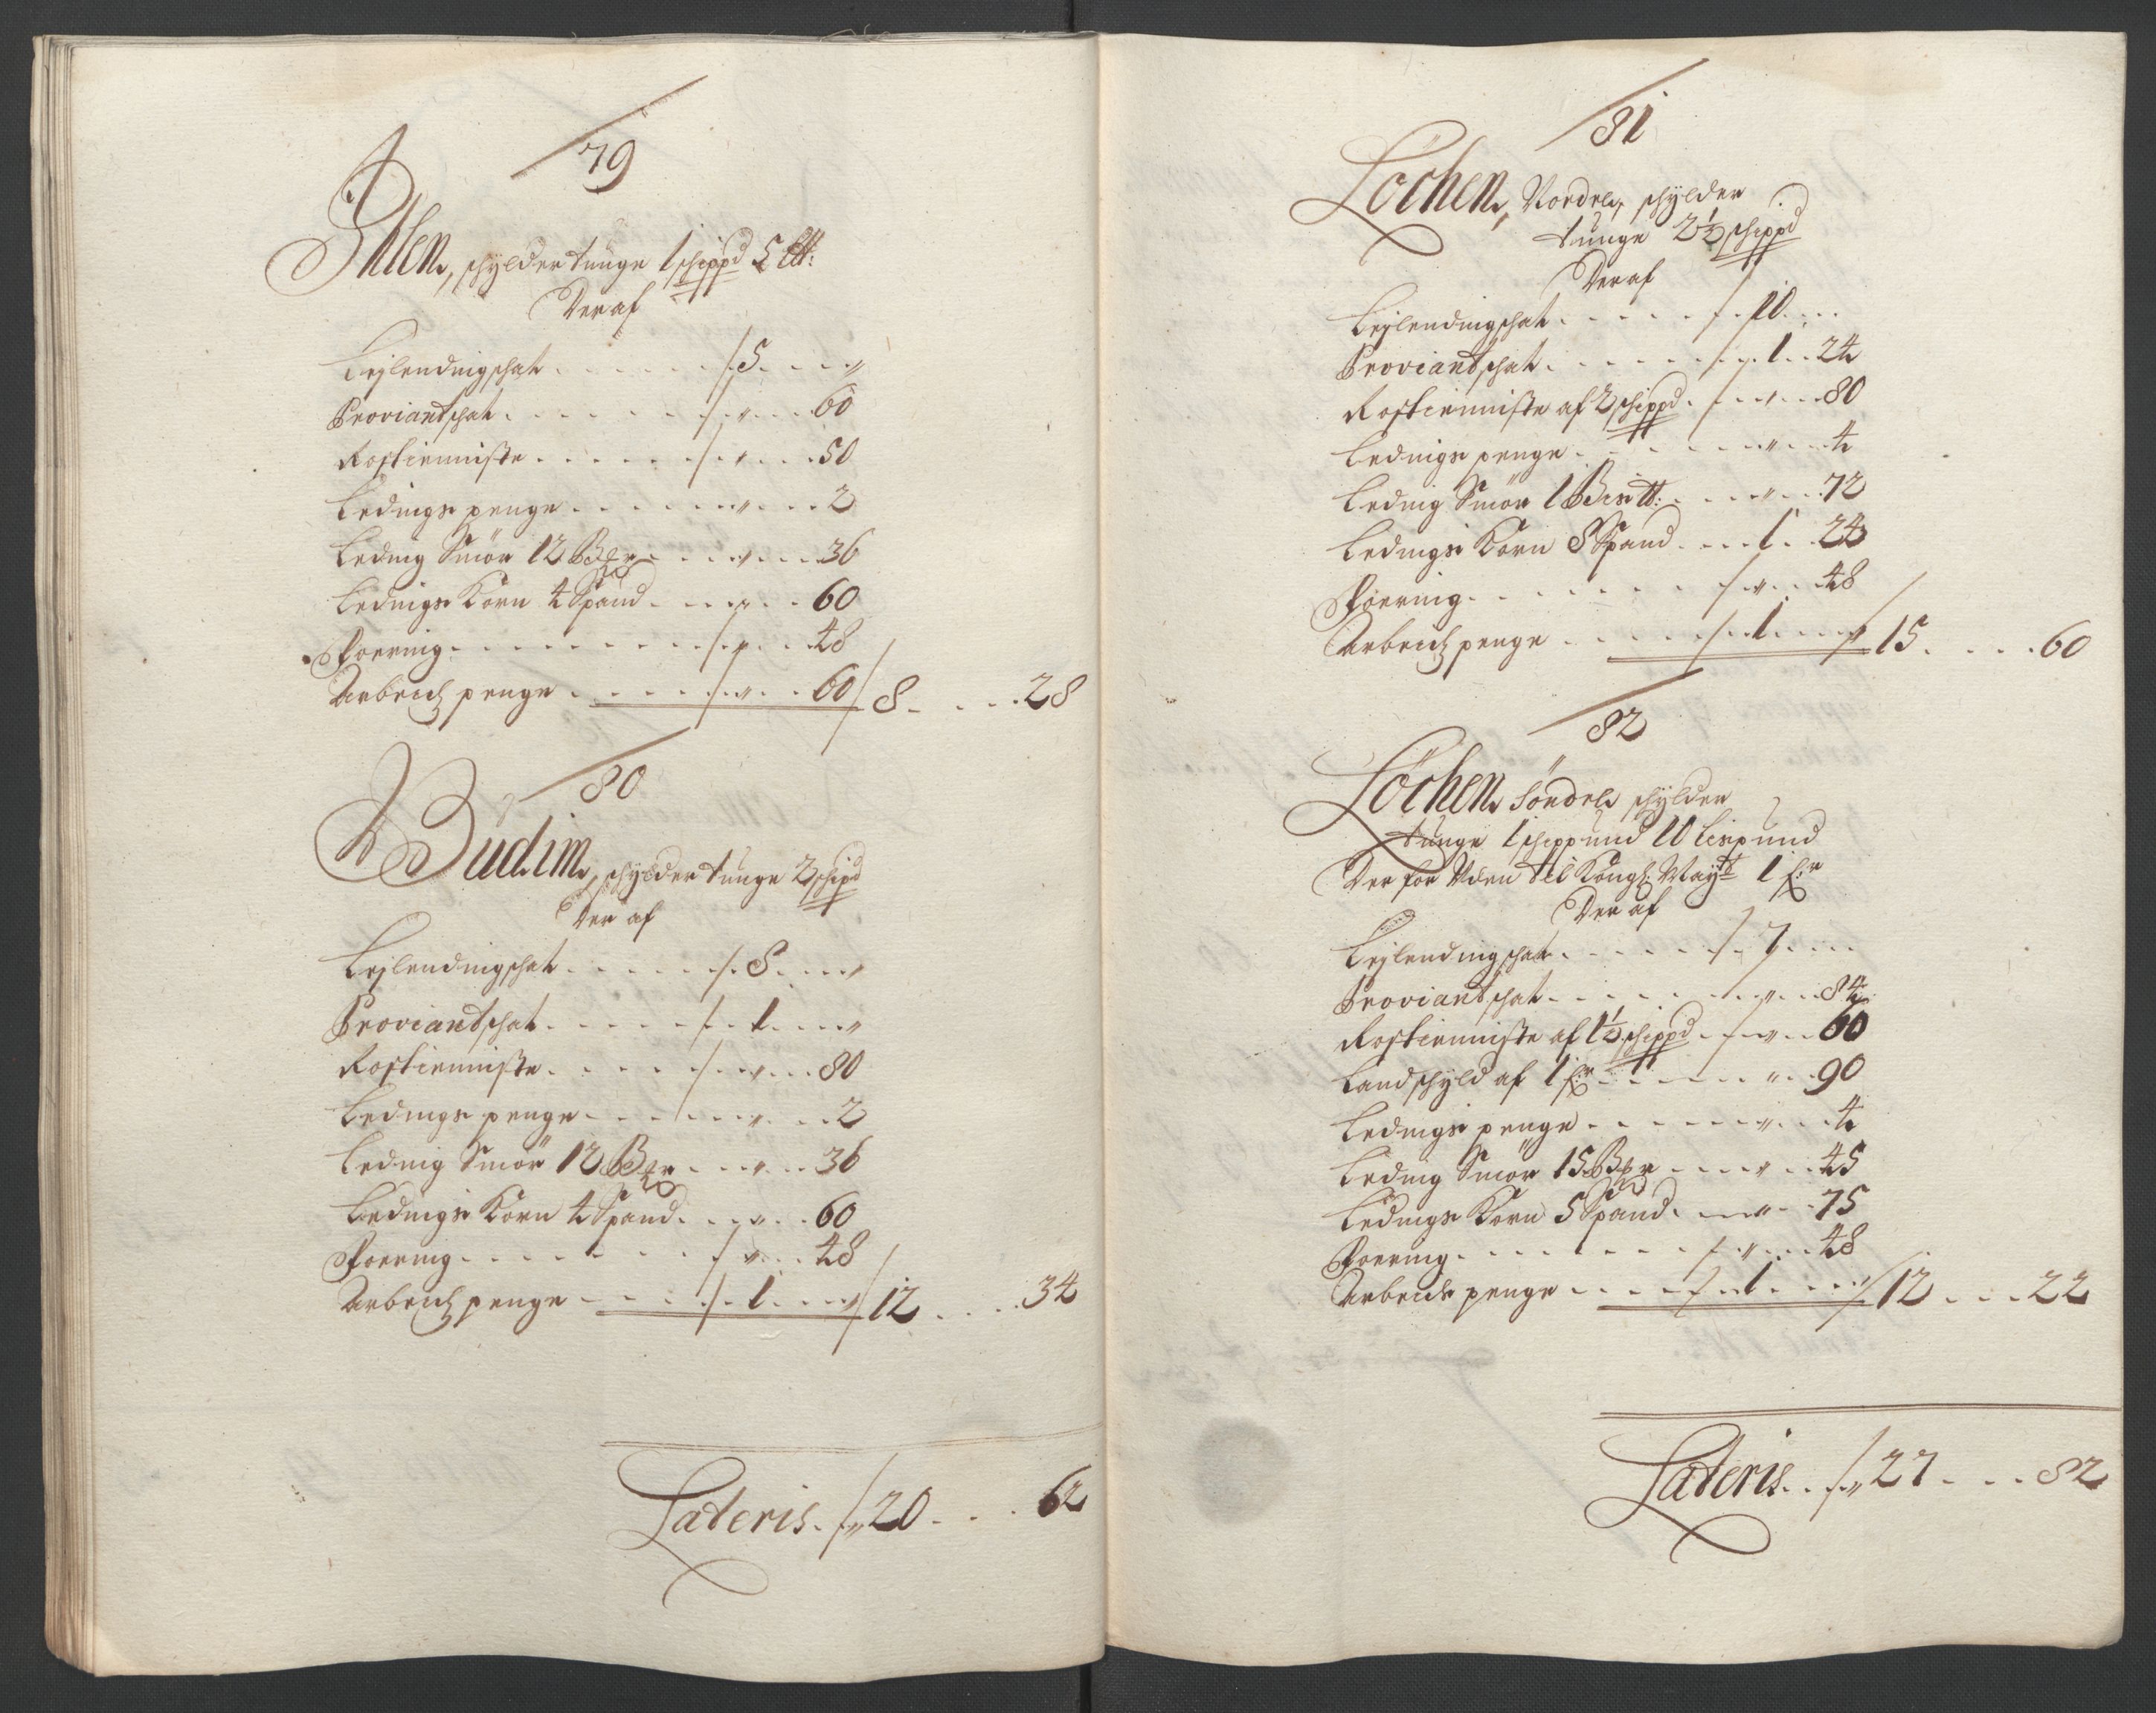 79
Ihlen, schylder tunge 1 schippd 5 L℔:
Der af
Lejlendingschat . . . . . . /. 5 . . . . „
Proviantschat . . . . . . . /. „ . . . 60
Rostienniste . . . . . . /. „ . . . 50
Ledings penge . . . . . . „ . . . 2
Leding Smör 12 Bger . . . „ . . . 36
Ledings Korn 4 Spand . . . „ . . 60
Foering . . . . . . . . /. „ . . . 48
Arbeids penge . . . . . /. „ . . 60 / 8 . . . . 28
80
Budim, schylder tunge 2 schipd
Der af
Lejlendingschat . . . . . . /. 8 . . . „
Proviantschat . . . . . . /. 1 . . . „
Rostienniste . . . . . /. „ . . . 80
Ledings penge . . . . . . „ . . . 2
Leding Smör 12 Bger . . . „ . . 36
Ledings Korn 4 Spand . . . „ . . 60
Foering . . . . . . . . /. „ . . . 48
Arbeids penge . . . . /. 1 . . . „ / 12 . . . . 34
Lateris . /. „ 20 . . . 62
81
Lochen, Nordre, schylder
tunge 2½ schippd
Der af
Lejlendingschat . . . . . . /. 10 . . .
Proviantschat . . . . . . /. 1 . . 24
Rostienniste af 2 schippd . /. „ . . 80
Ledings penge . . . . . . „ . . 4
Leding Smör 1 Bis℔: . . . „ . . 72
Ledings Korn 8 Spand . . . 1 . . 24
Foering . . . . . . . . /. „ . . 48
Arbeids penge . . . . . /. 1 . . . „ / 15 . . . . 60
82
Löchen Söndre schylder
tunge 1 schippund 10 Lispund
Der for Uden til Kongl: Maytt 1 S:r
Der af
Lejlendingschat . . . . . . /. 7 . . .
Proviantschat . . . . . . . „ . . 84
Rostienniste af 1½ schippd . /. „ . . 60
Landschyld af 1 S:r . . . . . „ . . 90
Ledings penge . . . . . . „ . . 4
Leding Smör 15 Bger . . . „ . . 45
Ledings Korn 5 Spand . . . „ . . 75
Foering . . . . . . . . /. „ . . . 48
Arbeids penge . . . . /. 1 . . . „ / 12 . . . 22
Lateris . . /. „ 27 . . . 82